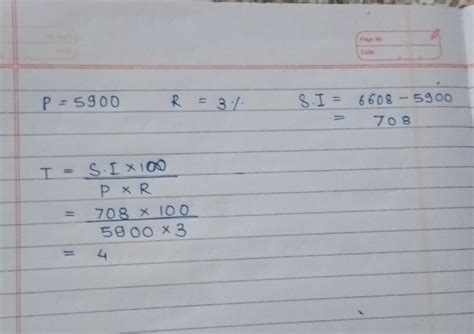 Page No.
Date
P = 5900 R = 3% S.I = 6608 - 5900
= 708
T = S.I × 100
P × R
= 708 × 100
5900 × 3
= 4